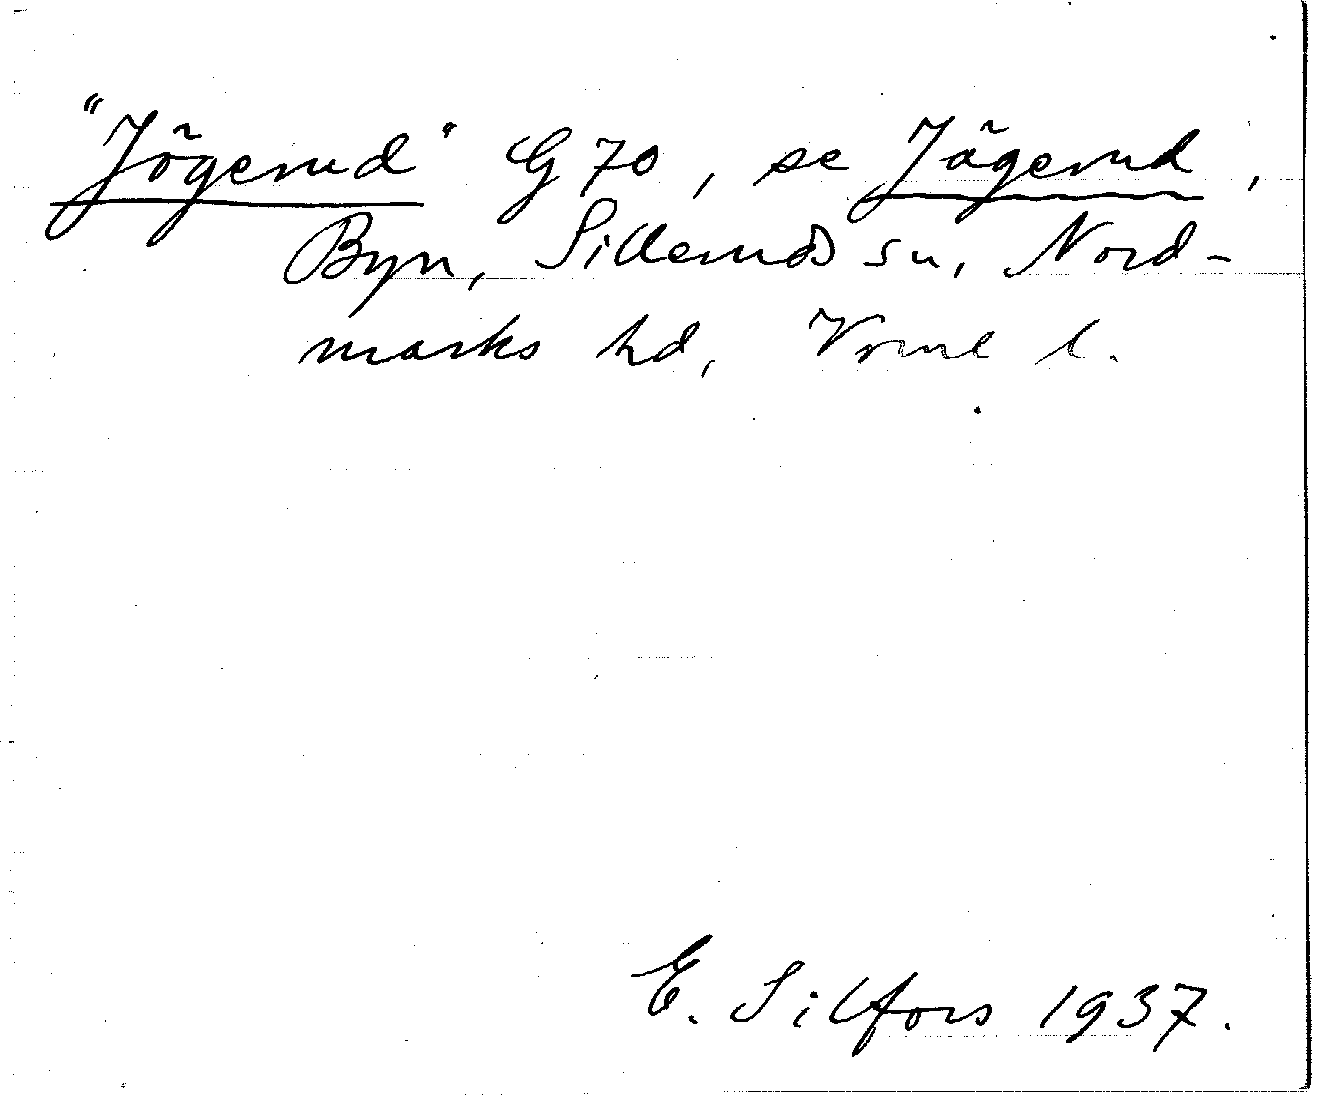 "Jögerud" G 70, se Jägerud,
Byn, Silleruds sn, Nord-
marks hd, Vrml l.
E. Silfors 1937.